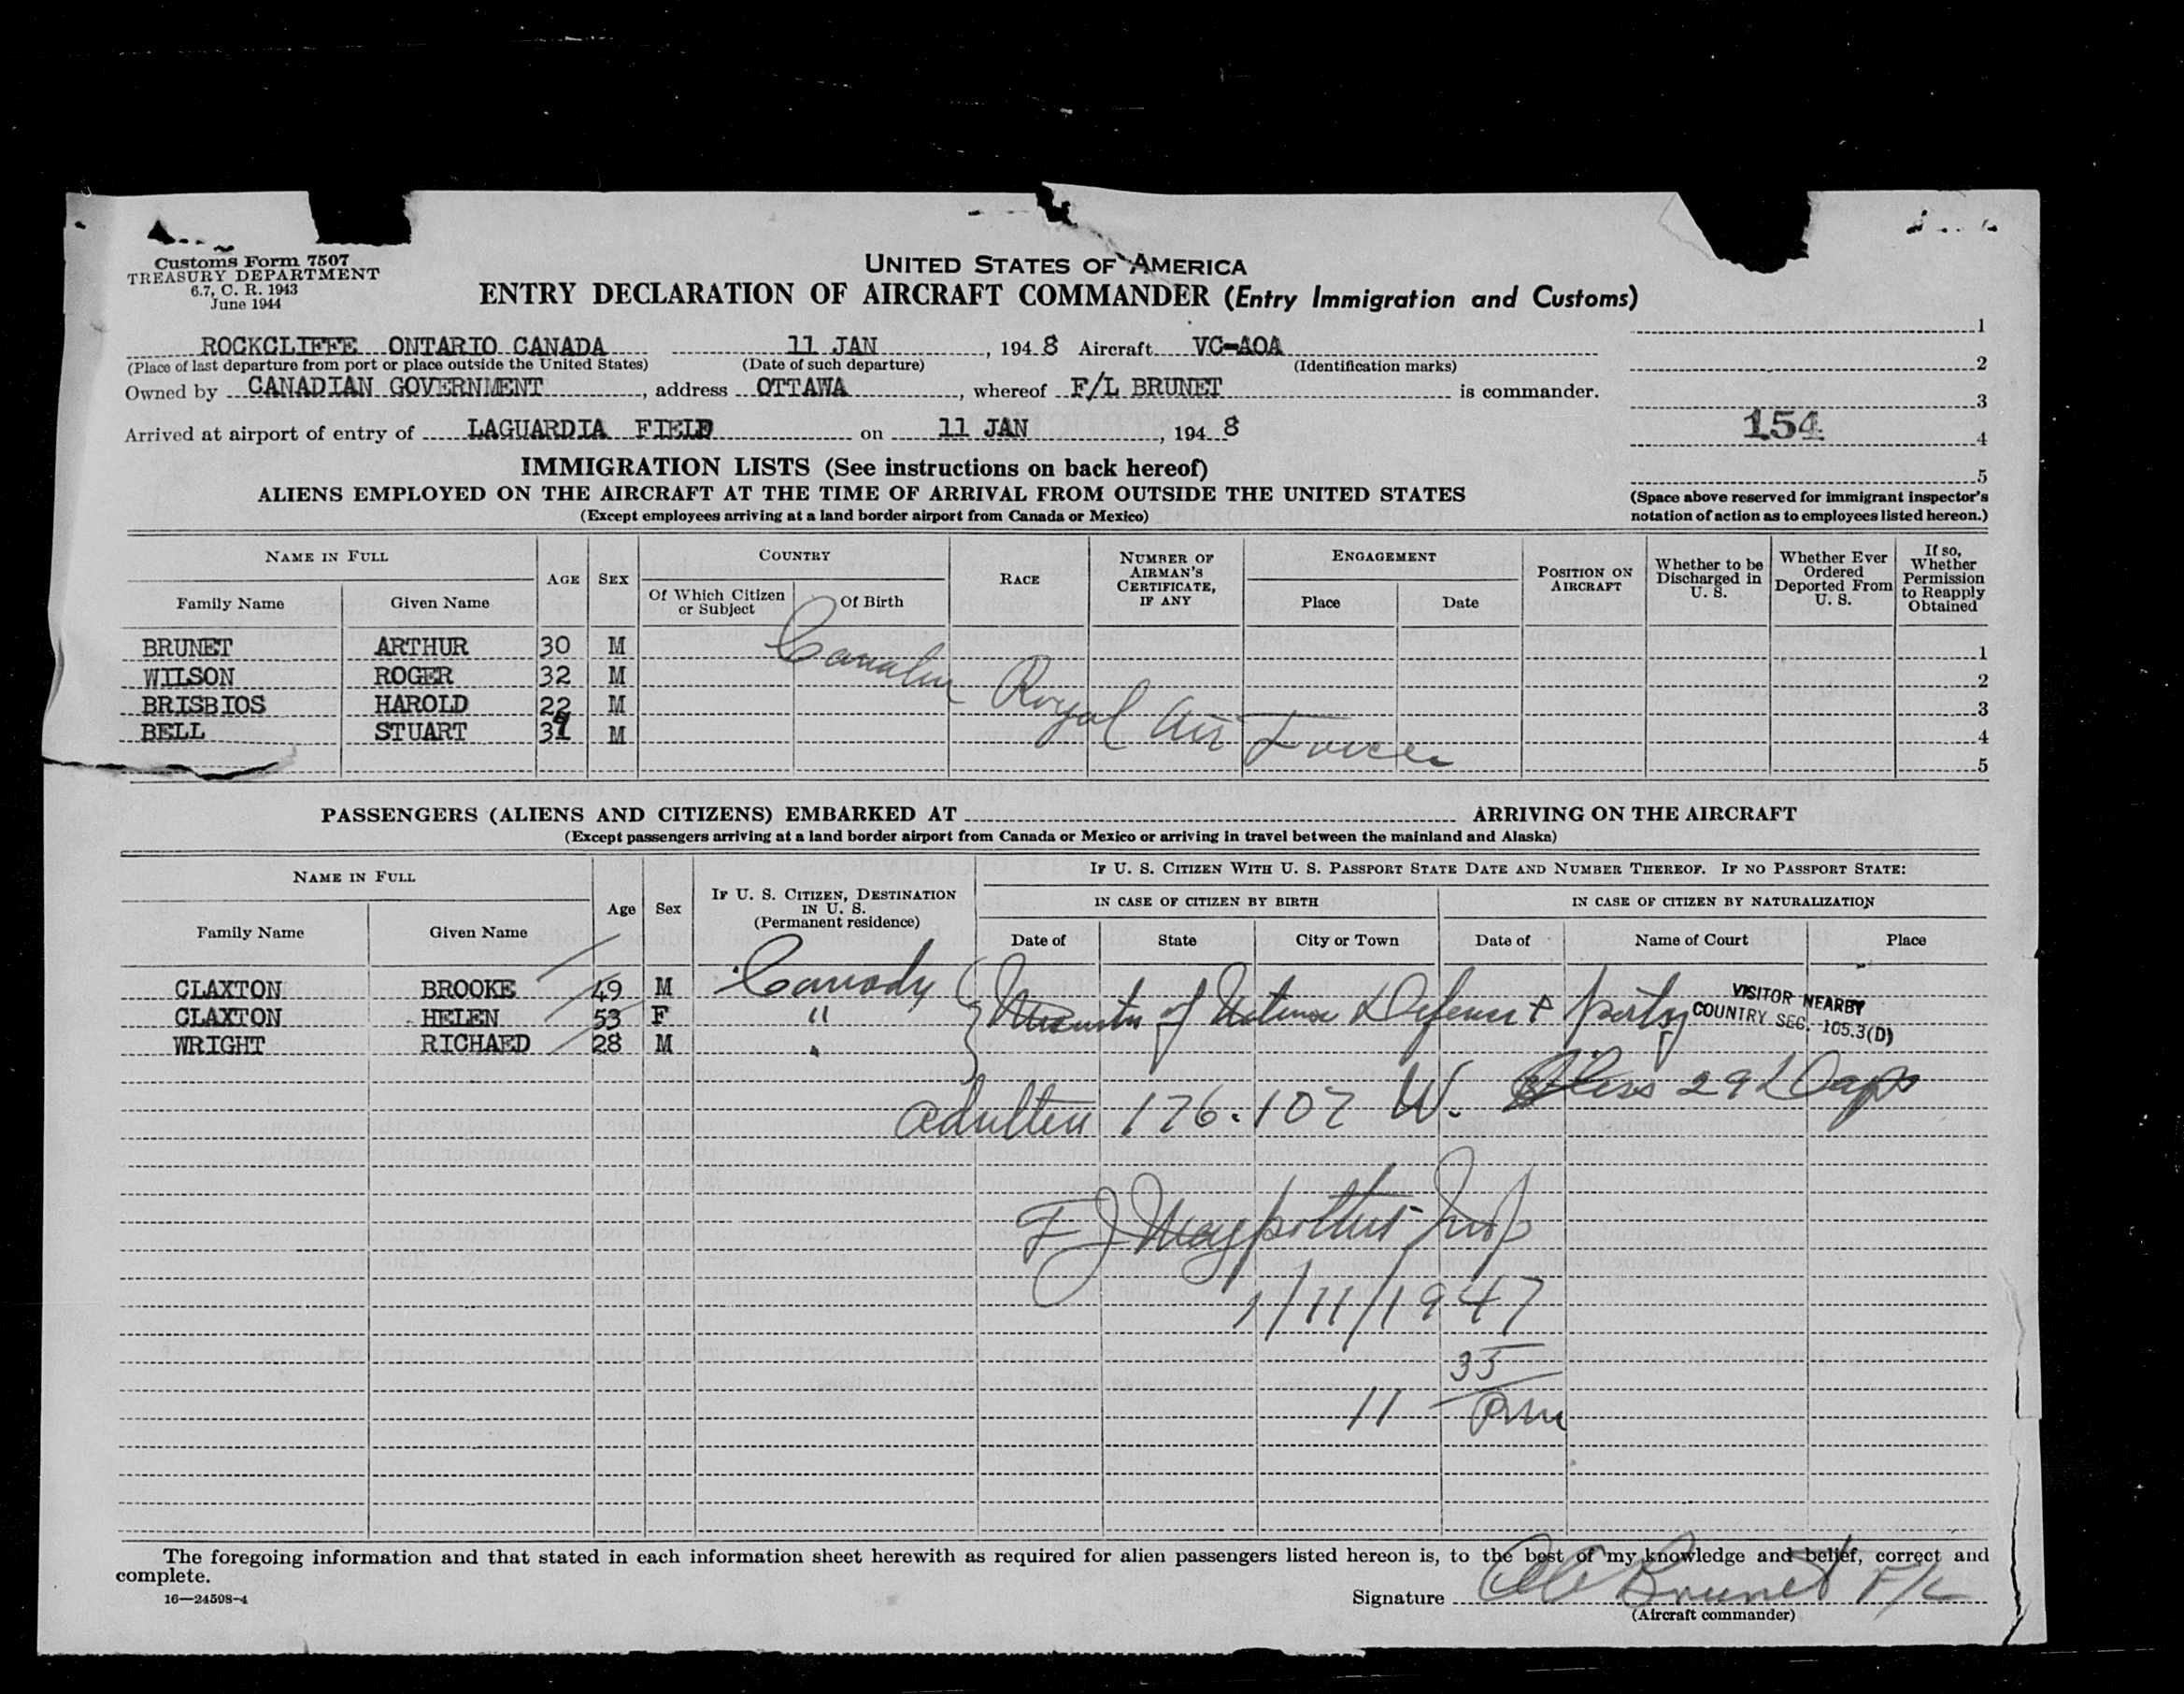 Customs Form 7507
TREASURY DEPARTMENT
6.7, C. R. 1943
June 1944
UNITED STATES OF AMERICA
ENTRY DECLARATION OF AIRCRAFT COMMANDER (Entry Immigration and Customs)
ROCKCLIFFE ONTARIO CANADA 11 JAN , 194 8 Aircraft VC-AOA
(Place of last departure from port or place outside the United States) (Date of such departure) (Identification marks)
Owned by CANADIAN GOVERNMENT , address OTTAWA , whereof F/L BRUNET is commander.
Arrived at airport of entry of LAGUARDIA FIELD on 11 JAN , 194 8
1
2
3
154 4
5
(Space above reserved for immigrant inspector's
notation of action as to employees listed hereon.)
IMMIGRATION LISTS (See instructions on back hereof)
ALIENS EMPLOYED ON THE AIRCRAFT AT THE TIME OF ARRIVAL FROM OUTSIDE THE UNITED STATES
(Except employees arriving at a land border airport from Canada or Mexico)
NAME IN FULL
Family Name Given Name
AGE SEX
COUNTRY
Of Which Citizen or Subject Of Birth
RACE
NUMBER OF AIRMAN'S CERTIFICATE, IF ANY
ENGAGEMENT
Place Date
POSITION ON AIRCRAFT
Whether to be Discharged in U. S.
Whether Ever Ordered Deported From U. S.
If so, Whether Permission to Reapply Obtained
BRUNET ARTHUR 30 M 1
WILSON ROGER 32 M 2
BRISBIOS HAROLD 22 M 3
BELL STUART M 4
5
Royal Air Force
PASSENGERS (ALIENS AND CITIZENS) EMBARKED AT ARRIVING ON THE AIRCRAFT
(Except passengers arriving at a land border airport from Canada or Mexico or arriving in travel between the mainland and Alaska)
NAME IN FULL
Family Name Given Name
Age Sex
IF U. S. CITIZEN, DESTINATION IN U. S.
(Permanent residence)
IF U. S. CITIZEN WITH U. S. PASSPORT STATE DATE AND NUMBER THEREOF. IF NO PASSPORT STATE:
IN CASE OF CITIZEN BY BIRTH IN CASE OF CITIZEN BY NATURALIZATION
Date of State City or Town Date of Name of Court Place
CLAXTON BROOKE 49 M Canada
CLAXTON HELEN 53 F "
WRIGHT RICHAED 28 M "
Minister of Defense + party
VISITOR NEARBY
COUNTRY SEC. 105.3(D)
less 29 Days
admitted 176.107 W.
F J
1/11/1947
11 35
The foregoing information and that stated in each information sheet herewith as required for alien passengers listed hereon is, to the best of my knowledge and belief, correct and
complete.
16—24598-4
Signature Brunet F/L
(Aircraft commander)